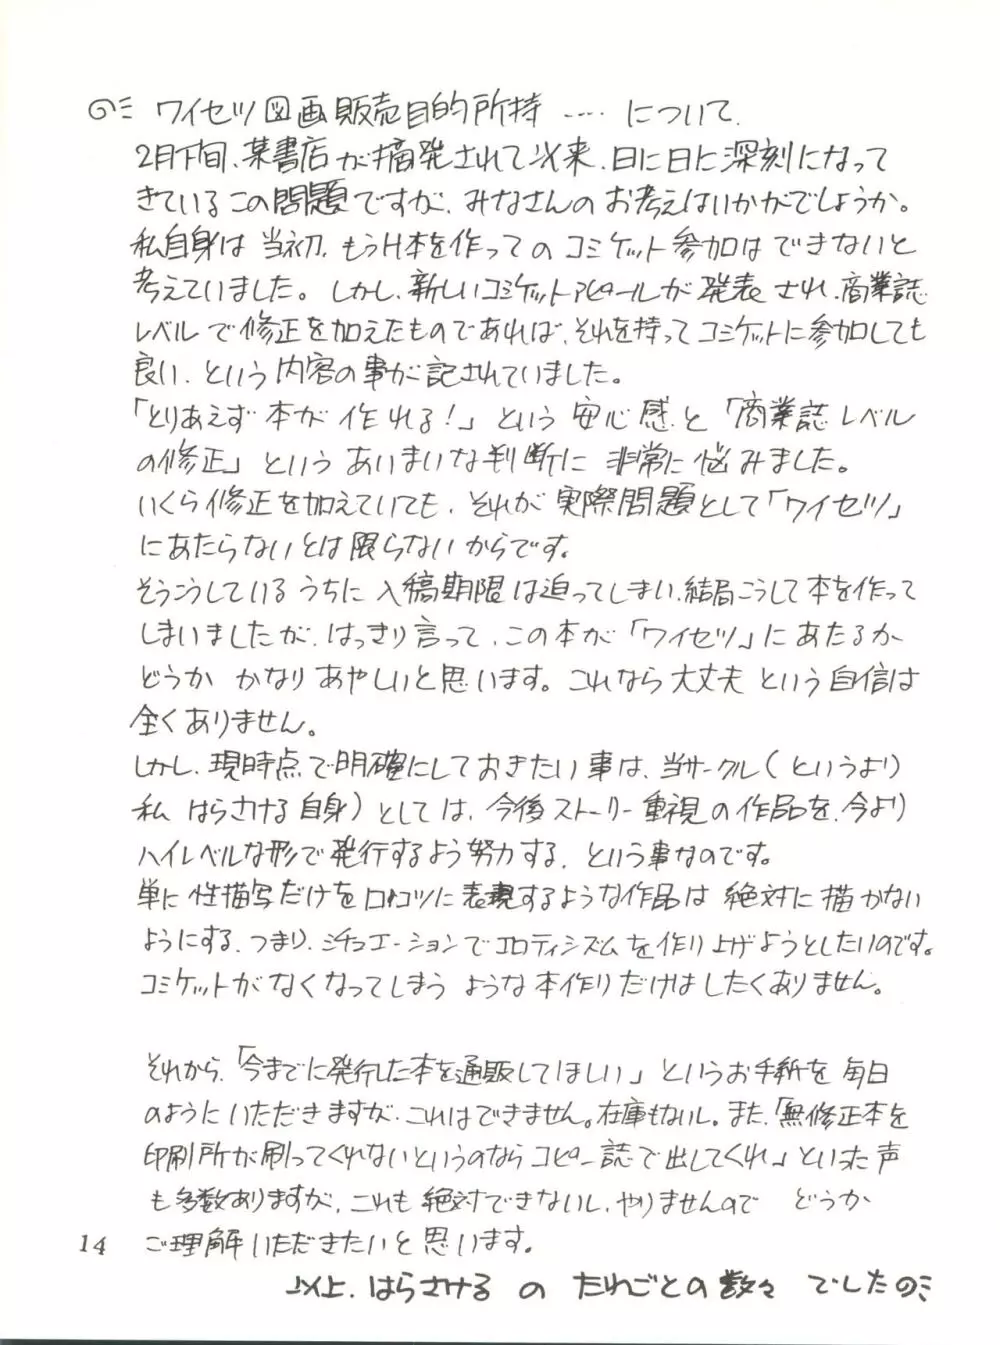 ワイセツ図画販売目的所持……について.
2月下旬、某書店が摘発されて以来、日に日に深刻になって
きているこの問題ですが、みなさんのお考えはいかがでしょうか。
私自身は当初、もうH本を作ってのコミケット参加はできないと
考えていました。しかし、新しいコミケットアピールが発表され、商業誌
レベルで修正を加えたものであれば、それを持ってコミケットに参加しても
良い、という内容の事が記されていました。
「とりあえず本が作れる!」という安心感と「商業誌レベル
の修正」というあいまいな判断に非常に悩みました。
いくら修正を加えていても、それが実際問題として「ワイセツ」
にあたらないとは限らないからです。
そうこうしているうちに入稿期限は迫ってしまい、結局こうして本を作って
しまいましたが、はっきり言って、この本が「ワイセツ」にあたるか
どうか かなりあやしいと思います。これなら大丈夫という自信は
全くありません。
しかし、現時点で明確にしておきたい事は、当サークル(というより
私 はらさける自身)としては、今後ストーリー重視の作品を、今より
ハイレベルな形で発行するよう努力する、という事なのです。
単に性描写だけをロコツに表現するような作品は絶対に描かない
ようにする、つまり、シチュエーションでエロティシズムを作り上げようとしたいのです。
コミケットがなくなってしまうような本作りだけはしたくありません。
それから、「今までに発行した本を通販してほしい」というお手紙を毎日
のようにいただきますが、これはできません。在庫もないし。また、「無修正本を
印刷所が刷ってくれないというのならコピー誌で出してくれ」といった声
も多数ありますが、これも絶対できないし、やりませんので どうか
ご理解いただきたいと思います。
14
以上、はらさけるのたわごとの数々でした